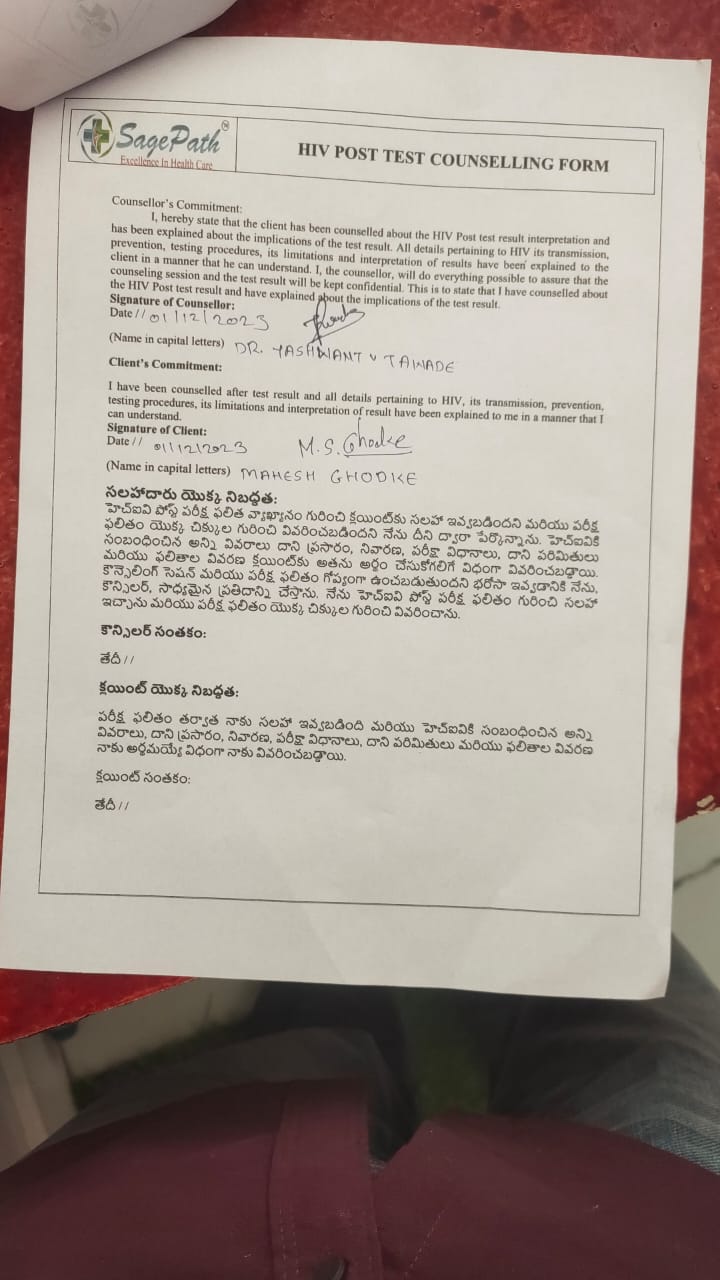 SagePath
Excellence In Health Care
HIV POST TEST COUNSELLING FORM
Counsellor's Commitment:
I, hereby state that the client has been counselled about the HIV Post test result interpretation and
has been explained about the implications of the test result. All details pertaining to HIV its transmission,
prevention, testing procedures, its limitations and interpretation of results have been explained to the
client in a manner that he can understand. I, the counsellor, will do everything possible to assure that the
counseling session and the test result will be kept confidential. This is to state that I have counselled about
the HIV Post test result and have explained about the implications of the test result.
Signature of Counsellor:
Date // 01/12/2023
(Name in capital letters) DR. YASHWANT V TAWADE
Client's Commitment:
I have been counselled after test result and all details pertaining to HIV, its transmission, prevention,
testing procedures, its limitations and interpretation of result have been explained to me in a manner that I
can understand.
Signature of Client:
Date // 01/12/2023 M.S.Ghodke
(Name in capital letters) MAHESH GHODKE
సలహాదారు యొక్క నిబద్ధత:
హెచ్ఐవి పోస్ట్ పరీక్ష ఫలిత వ్యాఖ్యానం గురించి క్లయింట్‌కు సలహా ఇవ్వబడిందని మరియు పరీక్ష
ఫలితం యొక్క చిక్కుల గురించి వివరించబడిందని నేను దీని ద్వారా పేర్కొన్నాను. హెచ్ఐవికి
సంబంధించిన అన్ని వివరాలు దాని ప్రసారం, నివారణ, పరీక్షా విధానాలు, దాని పరిమితులు
మరియు ఫలితాల వివరణ క్లయింట్‌కు అతను అర్థం చేసుకోగలిగే విధంగా వివరించబడ్డాయి.
కౌన్సెలింగ్ సెషన్ మరియు పరీక్ష ఫలితం గోప్యంగా ఉంచబడుతుందని భరోసా ఇవ్వడానికి నేను,
కౌన్సిలర్, సాధ్యమైన ప్రతిదాన్ని చేస్తాను. నేను హెచ్ఐవి పోస్ట్ పరీక్ష ఫలితం గురించి సలహా
ఇచ్చాను మరియు పరీక్ష ఫలితం యొక్క చిక్కుల గురించి వివరించాను.
కౌన్సిలర్ సంతకం:
తేదీ//
క్లయింట్ యొక్క నిబద్ధత:
పరీక్ష ఫలితం తర్వాత నాకు సలహా ఇవ్వబడింది మరియు హెచ్ఐవికి సంబంధించిన అన్ని
వివరాలు, దాని ప్రసారం, నివారణ, పరీక్షా విధానాలు, దాని పరిమితులు మరియు ఫలితాల వివరణ
నాకు అర్థమయ్యే విధంగా నాకు వివరించబడ్డాయి.
క్లయింట్ సంతకం:
తేదీ//